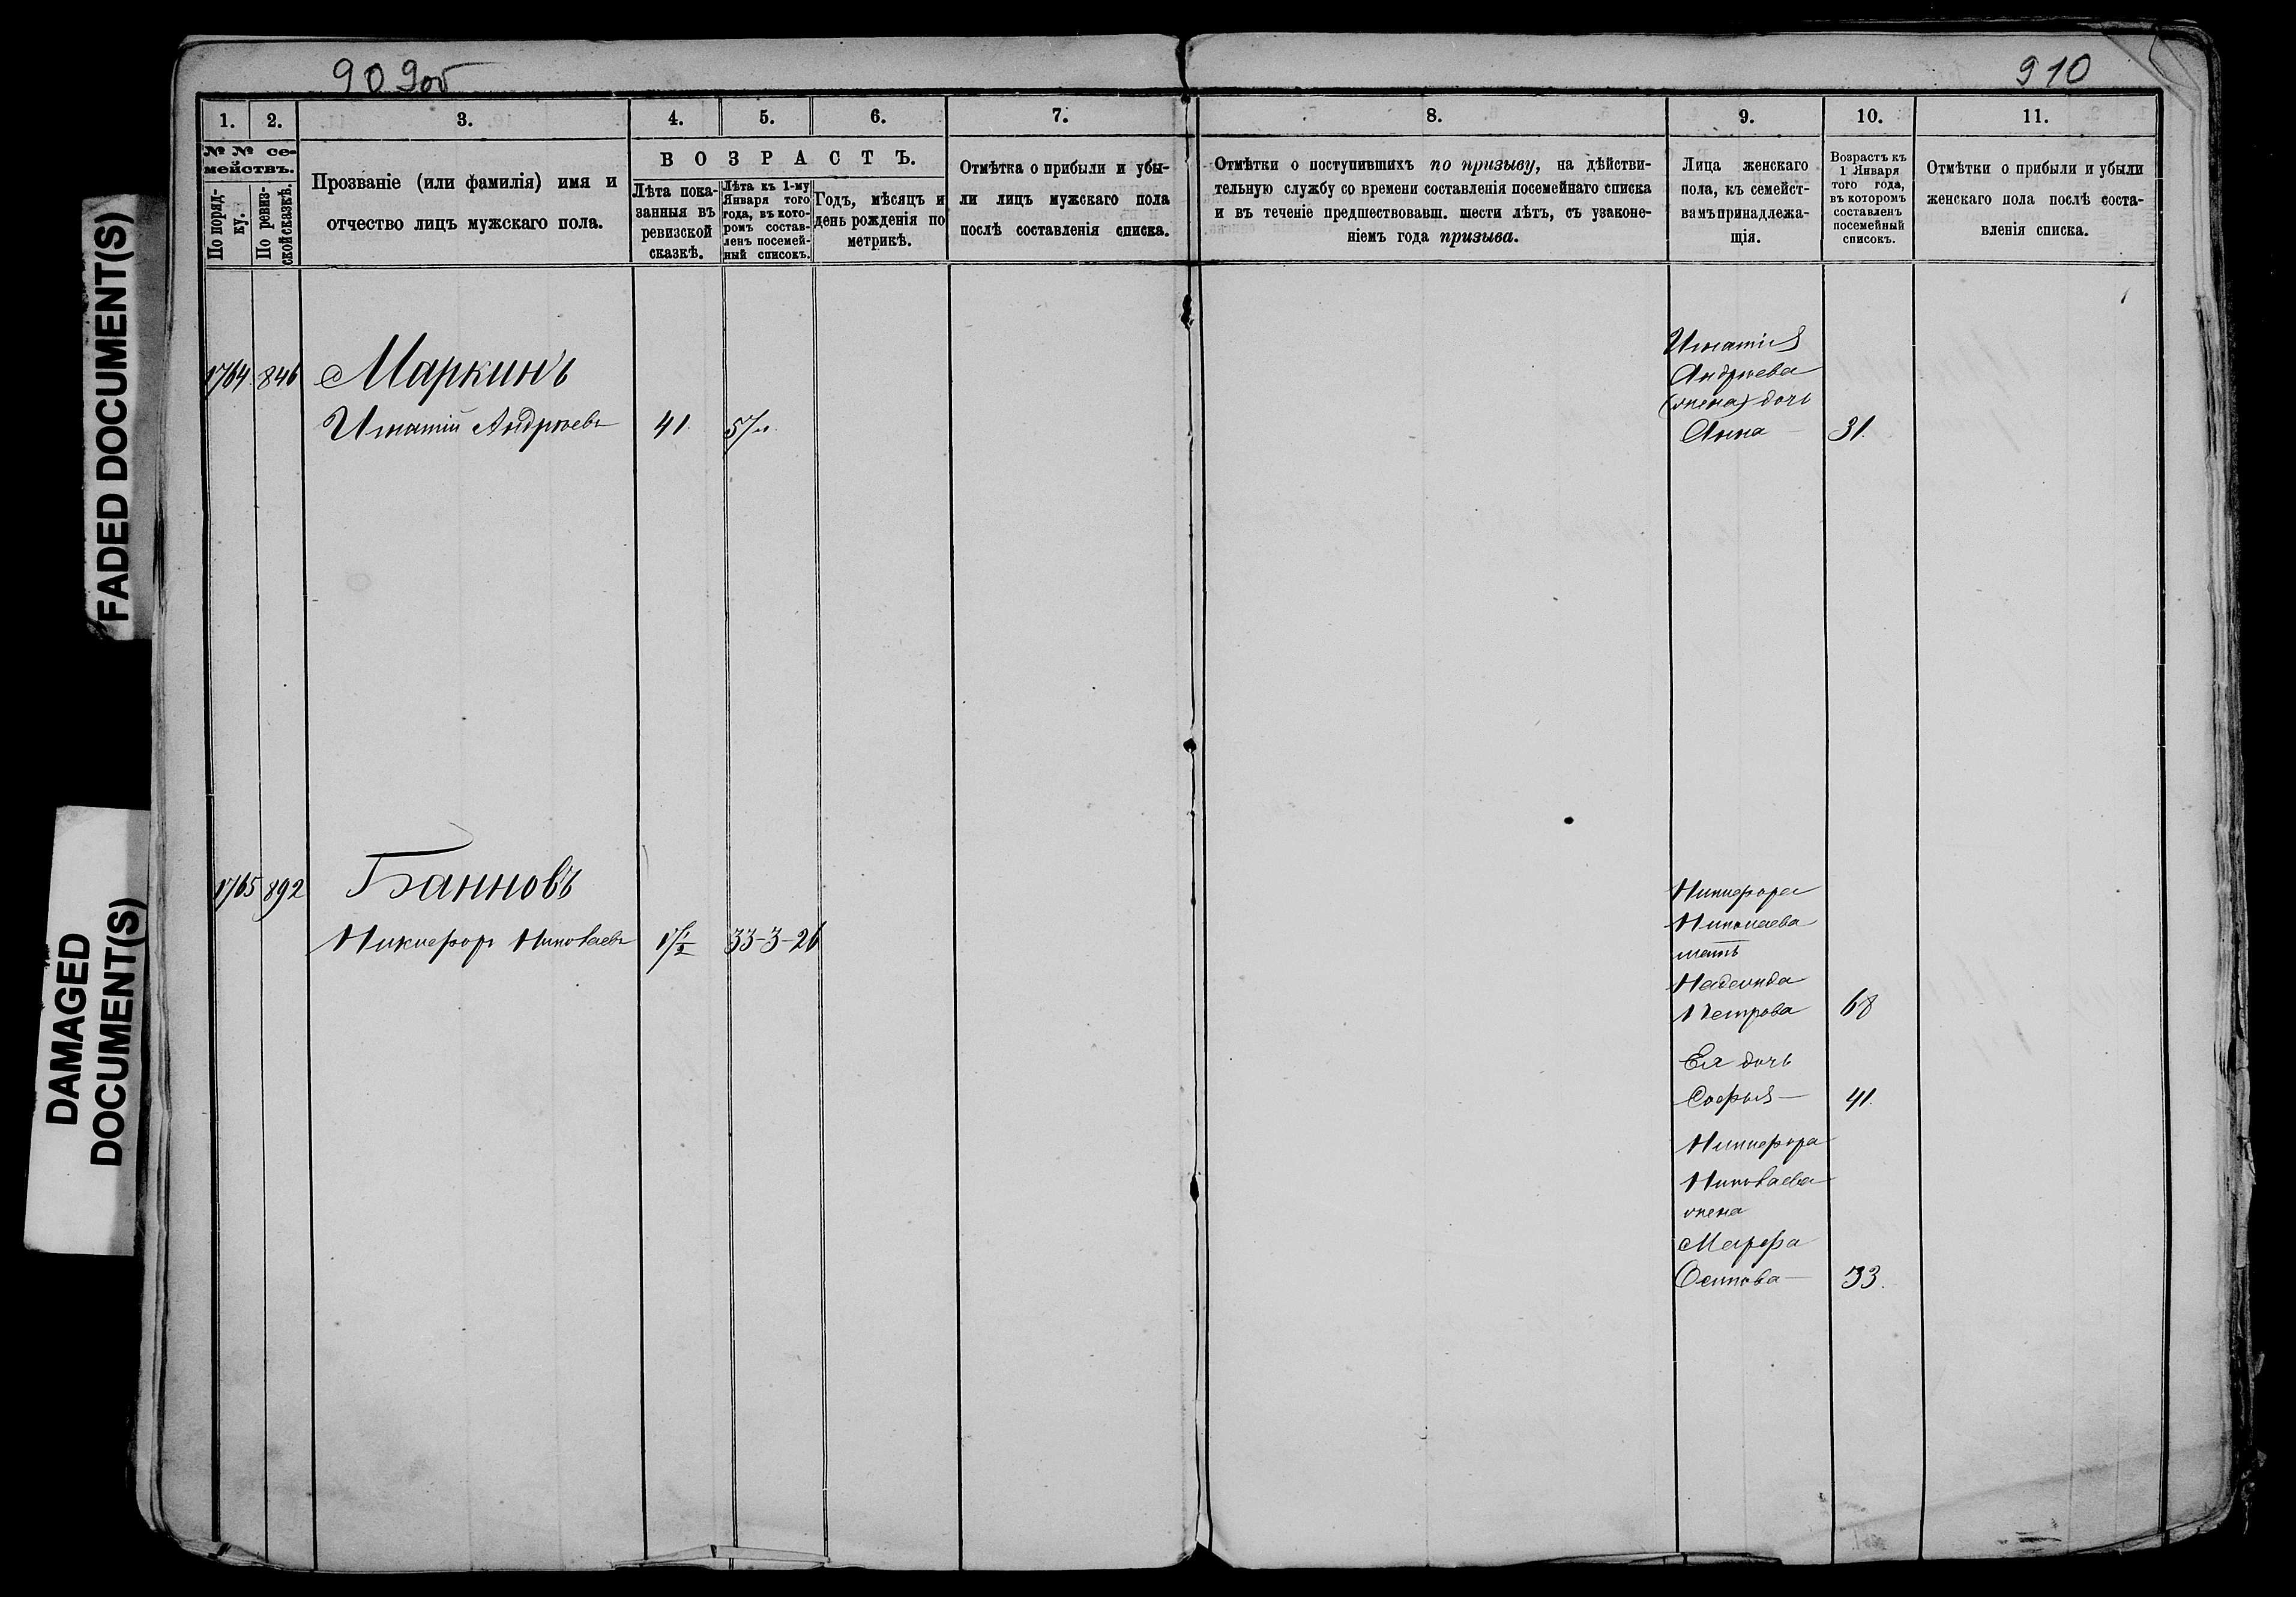 909об
910
1.
2.
3.
4.
5.
6.
7.
8.
9.
10.
11.
№ № се-
мействъ.
По поряд-
ку.
По ревиз-
ской сказкѣ.
Прозваніе (или фамилія) имя и
отчество лицъ мужскаго пола.
ВОЗРАСТЪ.
Лѣта пока-
занныя въ
ревизской
сказкѣ.
Лѣта къ 1-му
Января того
года, въ кото-
ромъ состав-
ленъ посемей-
ный списокъ.
Годъ, мѣсяцъ и
день рожденія по
метрикѣ.
Отмѣтка о прибыли и убы-
ли лицъ мужскаго пола
послѣ составленія списка.
Отмѣтки о поступившихъ по призыву, на дѣйстви-
тельную службу со времени составленія посемейнаго списка
и въ теченіе предшествовавш. шести лѣтъ, съ узаконе-
ніемъ года призыва.
Лица женскаго
пола, къ семейст-
вамъ принадлежа-
щія.
Возрастъ къ
1 Января
того года,
въ которомъ
составленъ
посемейный
списокъ.
Отмѣтки о прибыли и убыли
женскаго пола послѣ соста-
вленія списка.
1764 846 Маркинъ
Игнатій Андреевъ 41
Игнатія
Андреева
дочь
Анна 31.
1765 892 Банновъ
Никифоръ Николаевъ 1/2 33-3-26
Никифора
Николаева
мать
Надежда
Петрова 68
Ея дочь
Софья 41.
Никифора
Николаева
жена
Марфа
Осипова 33.
FADED DOCUMENT(S)
DAMAGED
DOCUMENT(S)